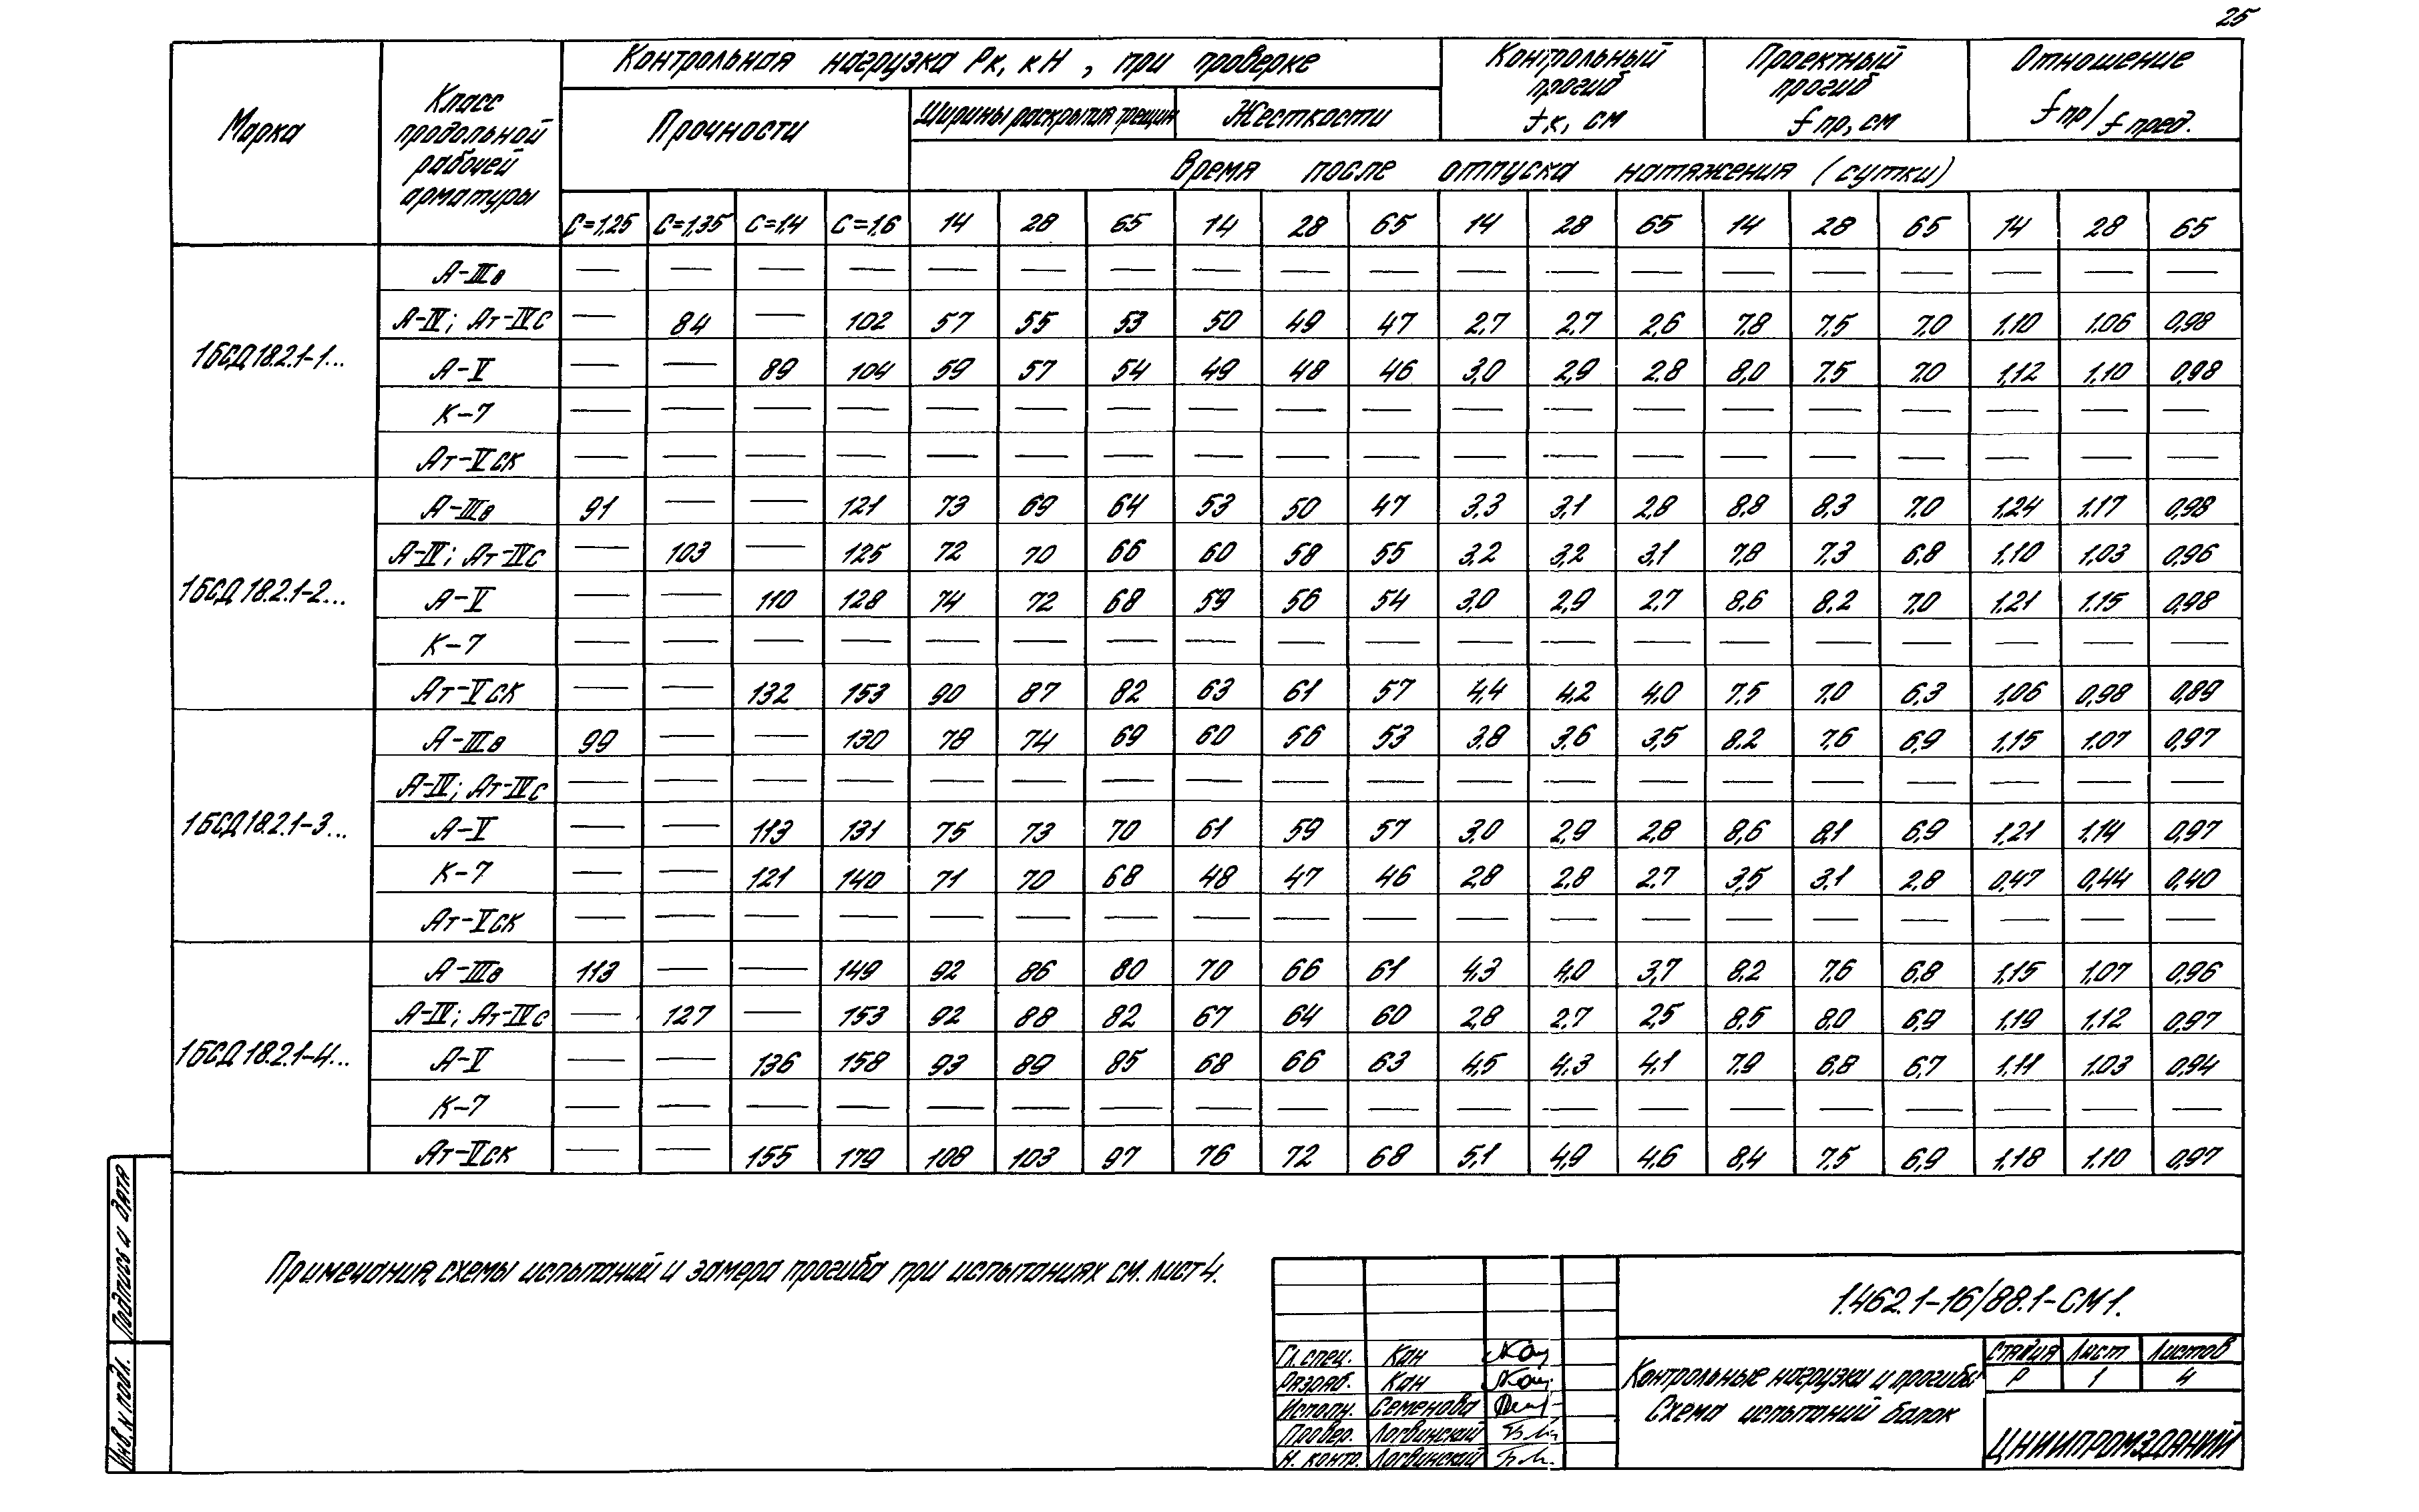 25
Марка
Класс продольной рабочей арматуры
Контрольная нагрузка Рк, кН, при проверке
Контрольный прогиб fк, см
Проектный прогиб fпр, см
Отношение fпр/fпред.
Прочности
Ширины раскрытия трещин
Жесткости
Время после отпуска натяжения (сутки)
С=1,25 С=1,35 С=1,4 С=1,6 14 28 65 14 28 65 14 28 65 14 28 65 14 28 65
1БСД18.2.1-1...
А-IIIв — — — — — — — — — — — — — — — — — — —
А-IV; Ат-IVС — 84 — 102 57 55 53 50 49 47 2,7 2,7 2,6 7,8 7,5 7,0 1,10 1.06 0,98
А-V — — 89 104 59 57 54 49 48 46 3,0 2,9 2,8 8,0 7,5 7,0 1,12 1.10 0,98
К-7 — — — — — — — — — — — — — — — — — — —
Ат-VСК — — — — — — — — — — — — — — — — — — —
1БСД18.2.1-2...
А-IIIв 91 — — 121 73 69 64 53 50 47 3,3 3,1 2,8 8,8 8,3 7,0 1,24 1.17 0,98
А-IV; Ат-IVС — 103 — 125 72 70 66 60 58 55 3,2 3,2 3,1 7,8 7,3 6,8 1,10 1,03 0,96
А-V — — 110 128 74 72 68 59 56 54 3,0 2,9 2,7 8,6 8,2 7,0 1,21 1.15 0,98
К-7 — — — — — — — — — — — — — — — — — — —
Ат-VСК — — 132 153 90 87 82 63 61 57 4,4 4,2 4,0 7,5 7,0 6,3 1,06 0,98 0,89
1БСД18.2.1-3...
А-IIIв 99 — — 130 78 74 69 60 56 53 3,8 3,6 3,5 8,2 7,6 6,9 1,15 1.07 0,97
А-IV; Ат-IVС — — — — — — — — — — — — — — — — — — —
А-V — — 113 131 75 73 70 61 59 57 3,0 2,9 2,8 8,6 8,1 6,9 1,21 1,14 0,97
К-7 — — 121 140 71 70 68 48 47 46 2,8 2,8 2,7 3,5 3,1 2,8 0,47 0,44 0,40
Ат-VСК — — — — — — — — — — — — — — — — — — —
1БСД18.2.1-4...
А-IIIв 113 — — 149 92 86 80 70 66 61 4,3 4,0 3,7 8,2 7,6 6,8 1,15 1,07 0,96
А-IV; Ат-IVС — 127 — 153 92 88 82 67 64 60 2,8 2,7 2,5 8,5 8,0 6,9 1,19 1.12 0,97
А-V — — 136 158 93 89 85 68 66 63 4,5 4,3 4,1 7,9 6,8 6,7 1,11 1.03 0,94
К-7 — — — — — — — — — — — — — — — — — — —
Ат-VСК — — 155 179 108 103 97 76 72 68 5,1 4,9 4,6 8,4 7,5 6,9 1,18 1.10 0,97
Примечания, схемы испытаний и замера прогиба при испытаниях см. лист 4.
1.462.1-16/88.1-СМ1.
Гл. спец. Кан
Разраб. Кан
Исполн. Семенова
Провер. Логвинский
Н. контр. Логвинский
Контрольные нагрузки и прогибы
Схема испытаний балок
Стадия Лист Листов
Р 1 4
ЦНИИПРОМЗДАНИЙ
Подпись и дата
Инв. N подл.